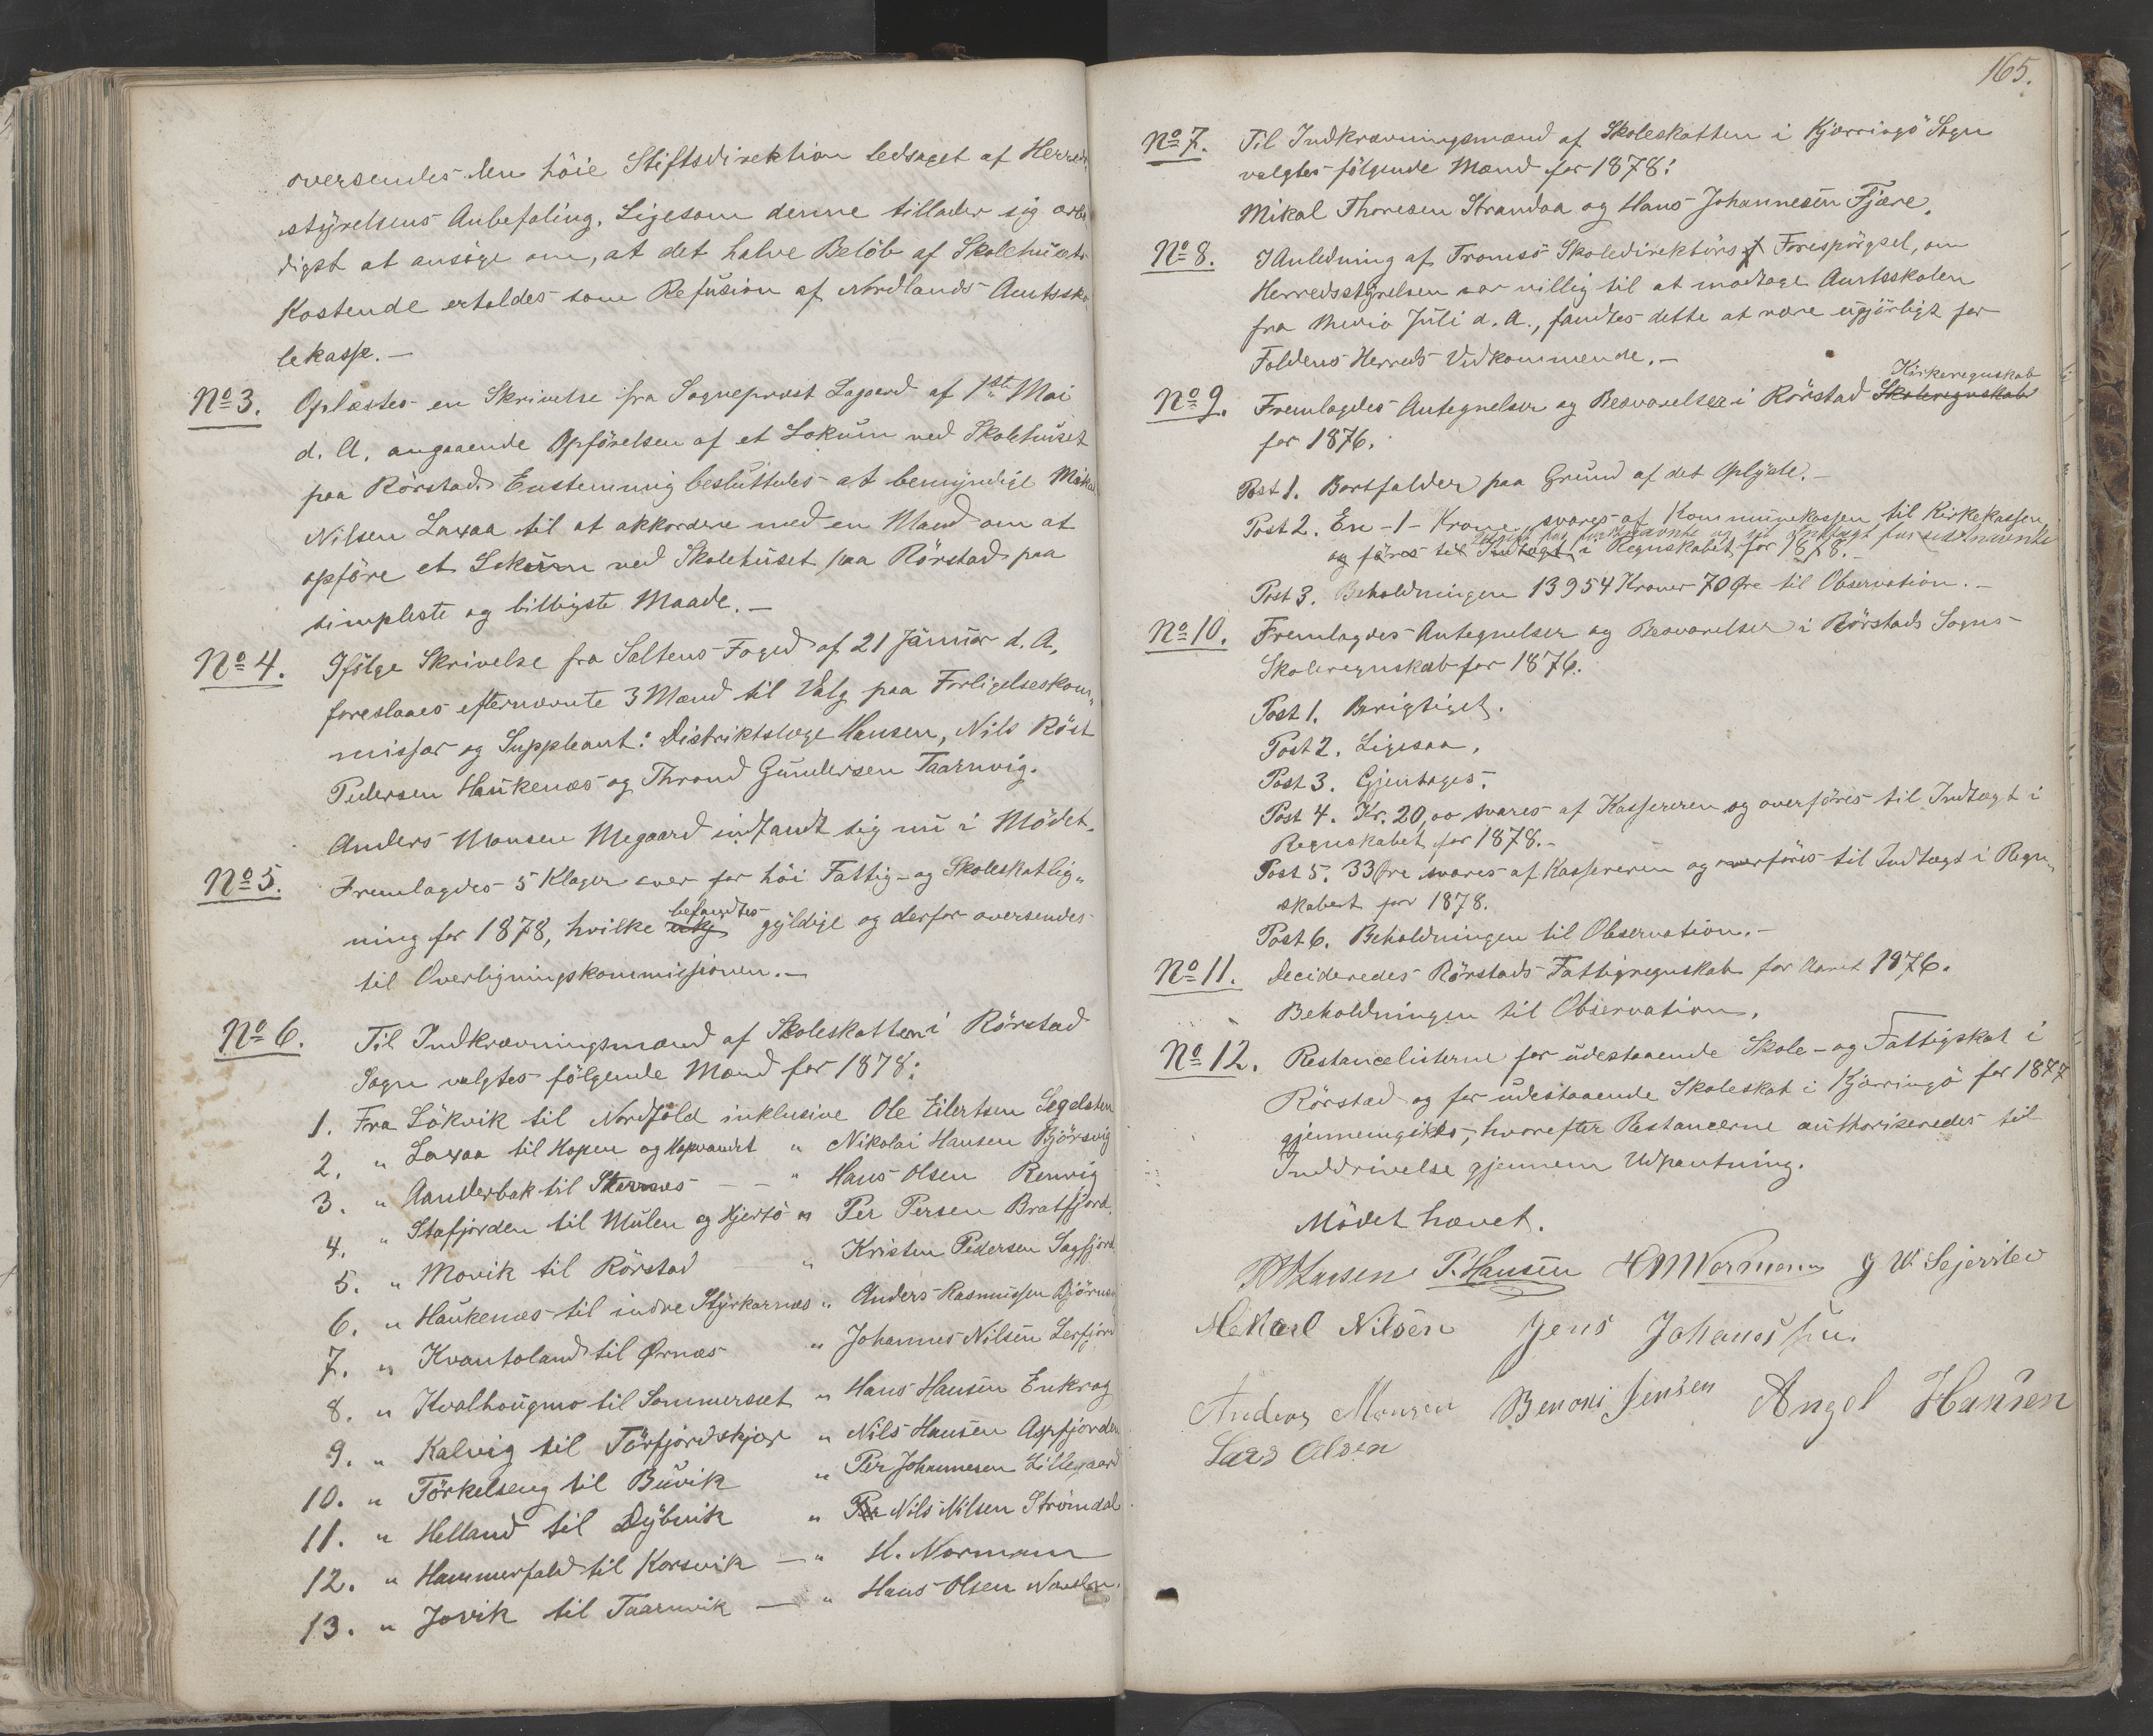 oversendes den höie Stiftsdirektion ledsaget af Herreds-
styrelsens Anbefaling. Ligesom denne tillader sig ærbö-
digst at ansöge om, at det halve Belöb af Skolehusets
Kostende erholdes som Refusion af Nordlands Amtssko-
lekasse.—
No 3. Oplæstes en Skrivelse fra Sogneprest Lagaard af 1ste Mai
d. A. angaaende Opförelsen af et Lokum ved Skolehuset
paa Rörstad. Enstemmig besluttedes at bemyndige Mikal
Nilsen Laxaa til at akkordere med en Mand om at
opföre et Lokum ved Skolehuset paa Rörstad paa
simpleste og billigste Maade.—
No 4. Ifölge Skrivelse fra Saltens Foged af 21 Januar d. A.
foreslaaes efternævnte 3 Mænd til Valg paa Forligelseskom-
missær og Suppleant: Distriktslæge Hansen, Nils Röst
Pedersen Haukenæs og Thrond Gundersen Taarnvig.
Anders Monsen Megaard indfandt sig nu i Mödet.
No 5. Fremlagdes 5 Klager over for höi Fattig- og Skoleskatlig-
befandtes
ning for 1878, hvilke gyldige og derfor oversendes
til Overligningskommissionen.—
No 6. Til Indkrævningsmænd af Skoleskatten i Rörstad
Sogn valgtes fölgende Mænd for 1878:
1. Fra Lökvik til Nordfold inklusive Ole Eilertsen Segelsten
2. " Laxaa til Hopen og Hopvandet " Nikolai Hansen Björsvig
3. " Aanderbak til Stærnæs — — " Hans Olsen Renvig
4. " Stafjorden til Mulen og Hjertö " Per Persen Bratfjord.
5. " Movik til Rörstad — " Kristen Pedersen Sagfjord
6. " Haukenæs til indre Styrkarnæs " Anders Rasmussen
7. " Kvantoland til Ørnæs " Johannes Nilsen Lerfjord
8. " Kvalhougmo til Sommerset " Hans Hansen Enkrog
9. " Kalvig til Törfjordskjær " Nils Hansen Aspfjorden
10. " Törkelseng til Buvik " Per Johannesen Lillegaard
11. " Helland til Dybvik " Per Nils Nilsen Strömdal
12. " Hammerfald til Korsvik — " H. Normann
13. " Jovik til Taarnvik — " Hans Olsen
165.
No 7. Til Indkrævningsmænd af Skoleskatten i Kjærringö Sogn
valgtes fölgende Mænd for 1878:
Mikal Thoresen Strandaa og Hans Johannesen Fjære.
No 8. I Anledning af Tromsö Skoledirektörs Forespörgsel, om
Herredsstyrelsen var villig til at modtage Amtsskolen
fra Medio Juli d. A., fandtes dette at være ugjörligt for
Foldens Herreds Vedkommende.—
Kirkeregnskab
No 9. Fremlagdes Antegnelser og Besvarelser i Rörstad Skoleregnskab
for 1876.
Post 1. Bortfalder paa Grund af det Oplyste.—
Post 2. En -1- Krone svares af Kommunekassen til Kirkekassen
Udgift for förstnævnte og til Indtægt for sidstnævnte
og föres til Indtægt i Regnskabet for 1878.—
Post 3. Beholdningen 13954 Kroner 70 Øre til Observation.—
No 10. Fremlagdes Antegnelser og Besvarelser i Rörstads Sogns
Skoleregnskab for 1876.
Post 1. Berigtiget.
Post 2. Ligesaa.
Post 3. Gjentages.
Post 4. Kr. 20,00 svares af Kassereren og overföres til Indtægt i
Regnskabet for 1878.—
Post 5. 33 Øre svares af Kassereren og overföres til Indtægt i Regn-
skabet for 1878.
Post 6. Beholdningen til Observation.—
No 11. Decideredes Rörstads Fattigregnskab for Aaret 1876.
Beholdningen til Observation.
No 12. Restancelisterne for udestaaende Skole- og Fattigskat i
Rörstad og for udestaaende Skoleskat i Kjærringö for 1877
gjennemgikkes, hvorefter Restancerne authoriseredes til
Inddrivelse gjennem Udpantning.
Mödet hævet.
Larsen P. Hansen HMNormann J W. Sejersted
Mekael Nilsen Jens Johanessen.
Anders Monsen Benoni Jensen Angel Hansen
Lars Olsen